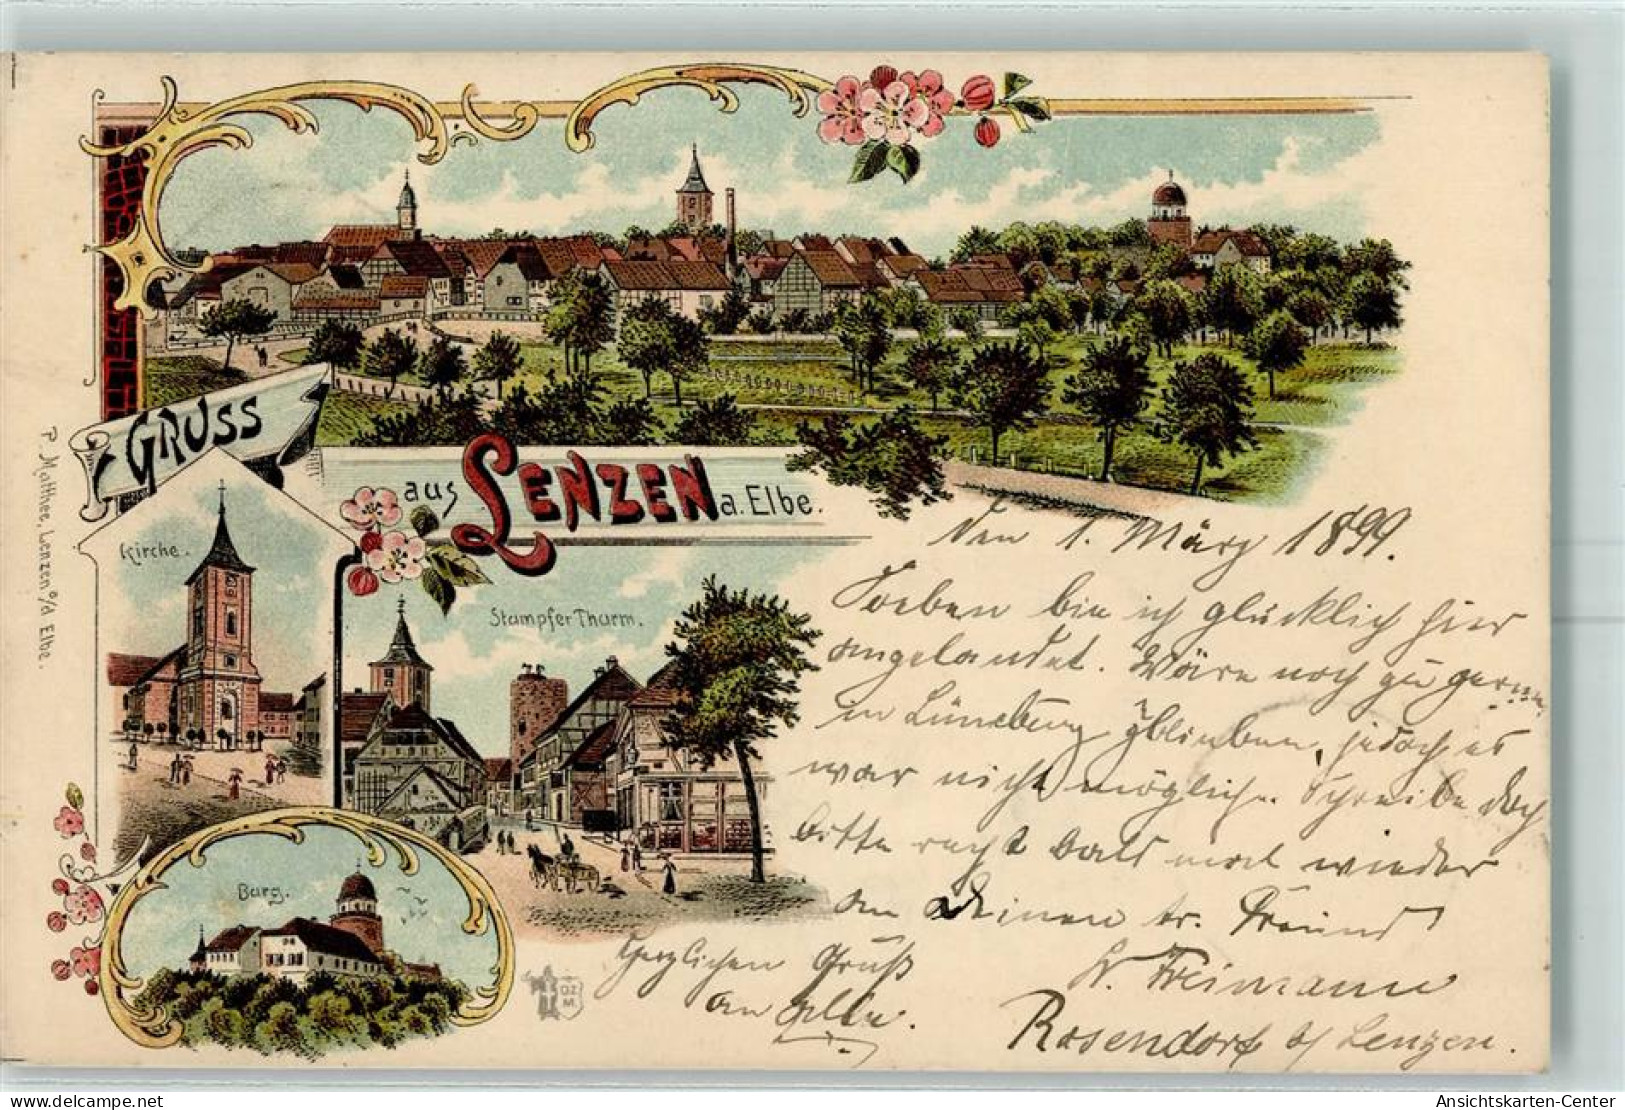 GRUSS
aus LENZEN a. Elbe.
Kirche.
Stumpfer Thurm.
Burg.
P. Matthee, Lenzen a/d Elbe.
DZ.
M.
den 1. März 1899.
Soeben bin ich glücklich hier
angelandet. Wäre noch zu gerne
in Lüneburg geblieben, jedoch es
war nicht möglich. Schreibe doch
bitte recht bald mal wieder
an Deinen tr. Freund
W. Freimann
Rosendorf b/ Lenzen.
Herzlichen Gruß
an Alle.
Ansichtskarten-Center
delcampe.net